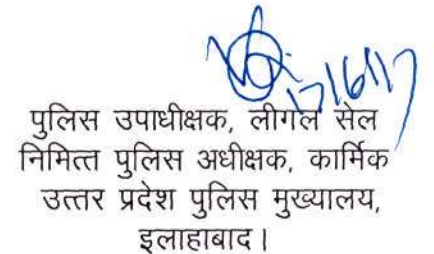 17/6/17
पुलिस उपाधीक्षक, लीगल सेल
निमित्त पुलिस अधीक्षक, कार्मिक
उत्तर प्रदेश पुलिस मुख्यालय,
इलाहाबाद।